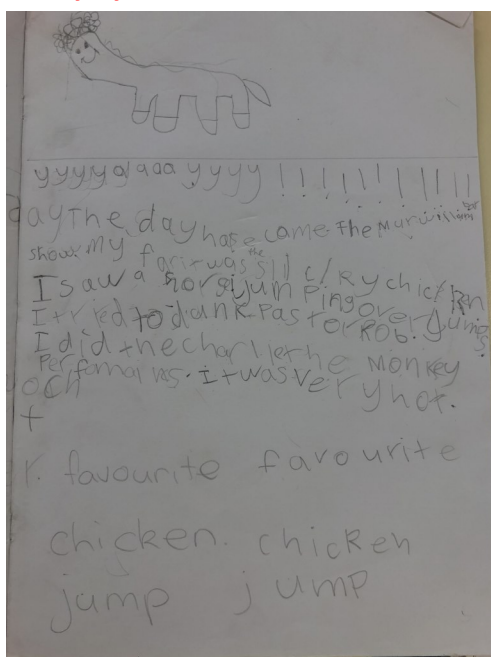 yyyyaaaa yyyy!!!!!!!!!!!
ay The day hase came. The Murwillim
show. My farit was the sil c/Ky chicken
I saw a horsi jumping over Jumps.
I tried to dunk Pastor Rob.
I did the charlie the Monkey
Performar ns. it was very hot.
OCH
t
1. favourite favourite
chicken. chicken
jump jump